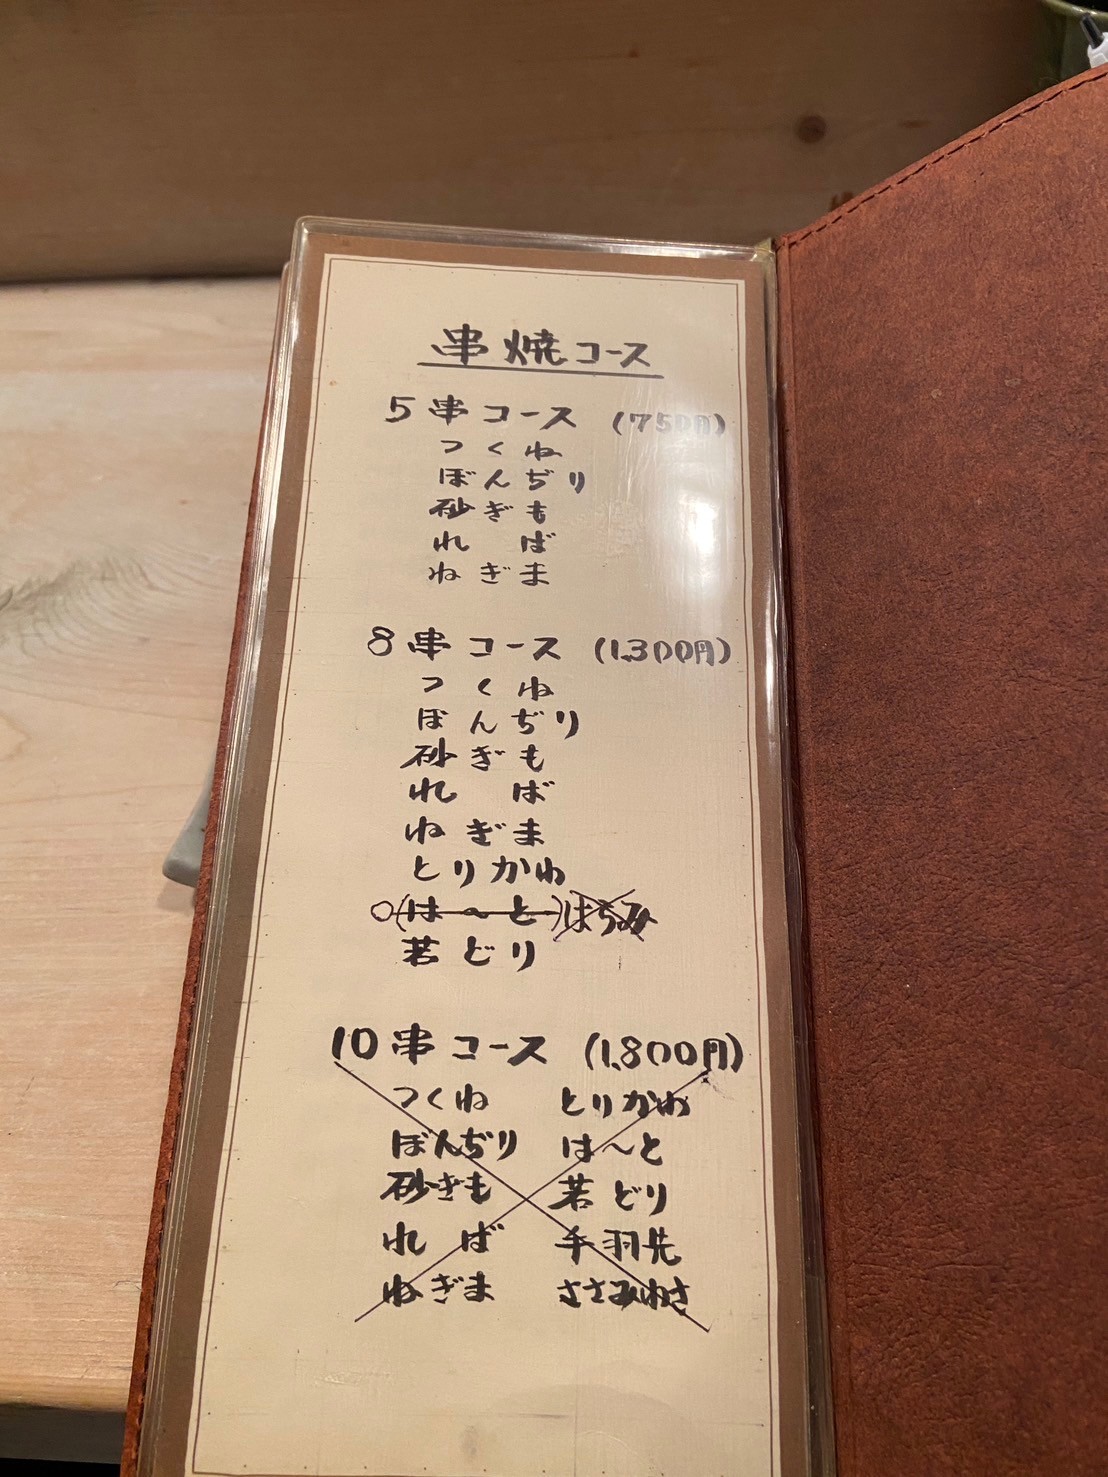 串焼コース
5串コース (750円)
つくね
ぼんぢり
砂ぎも
れば
ねぎま
8串コース (1,300円)
つくね
ぼんぢり
砂ぎも
れば
ねぎま
とりかわ
○(は〜と)はらみ
若どり
10串コース (1,800円)
つくね とりかわ
ぼんぢり は〜と
砂ぎも 若どり
れば 手羽先
ねぎま ささみわさ